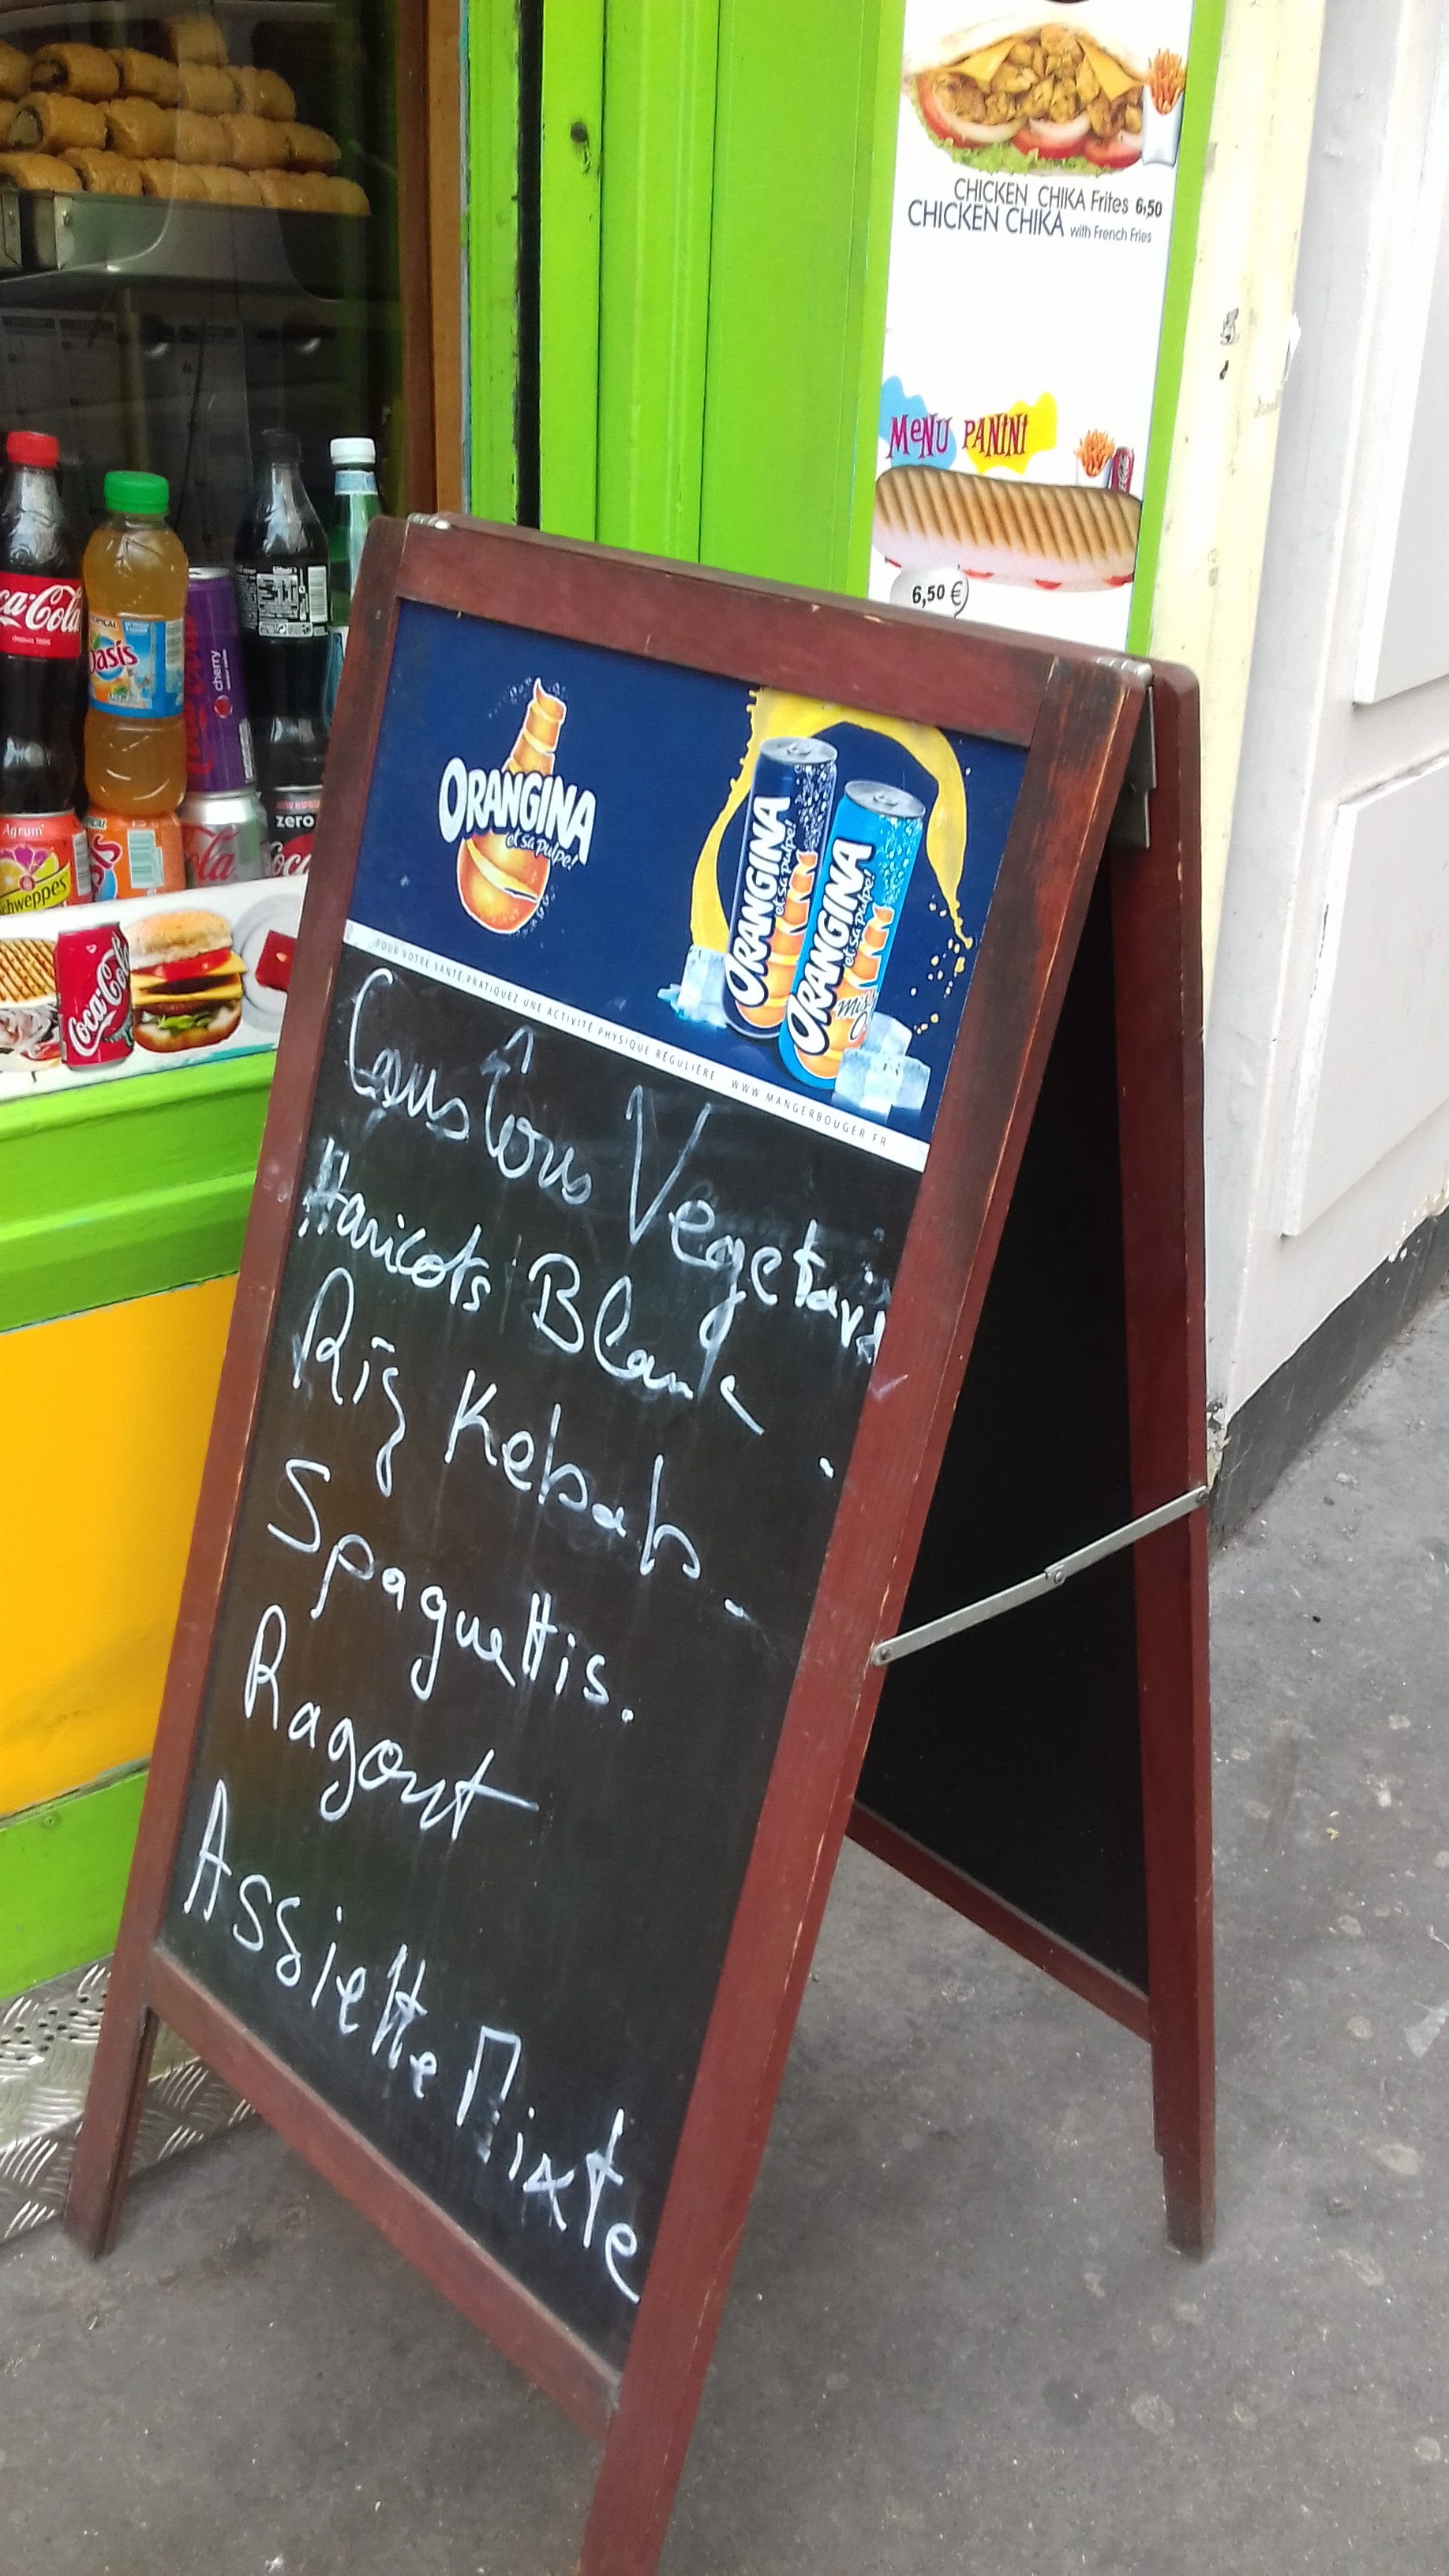 CHICKEN CHIKA Frites 6,50
CHICKEN CHIKA with French Fries
MENU PANINI
6,50 €
Coca-Cola
depuis 1886
Oasis
cherry
Agrum'
Schweppes
zero
Coca-Cola
ORANGINA
et sa pulpe!
ORANGINA
et sa pulpe!
ORANGINA
et sa pulpe!
POUR VOTRE SANTÉ, PRATIQUEZ UNE ACTIVITÉ PHYSIQUE RÉGULIÈRE - WWW.MANGERBOUGER.FR
Haricots Blanc
Riz Kebab.
Spaguettis.
Ragout
Assiette Mixte